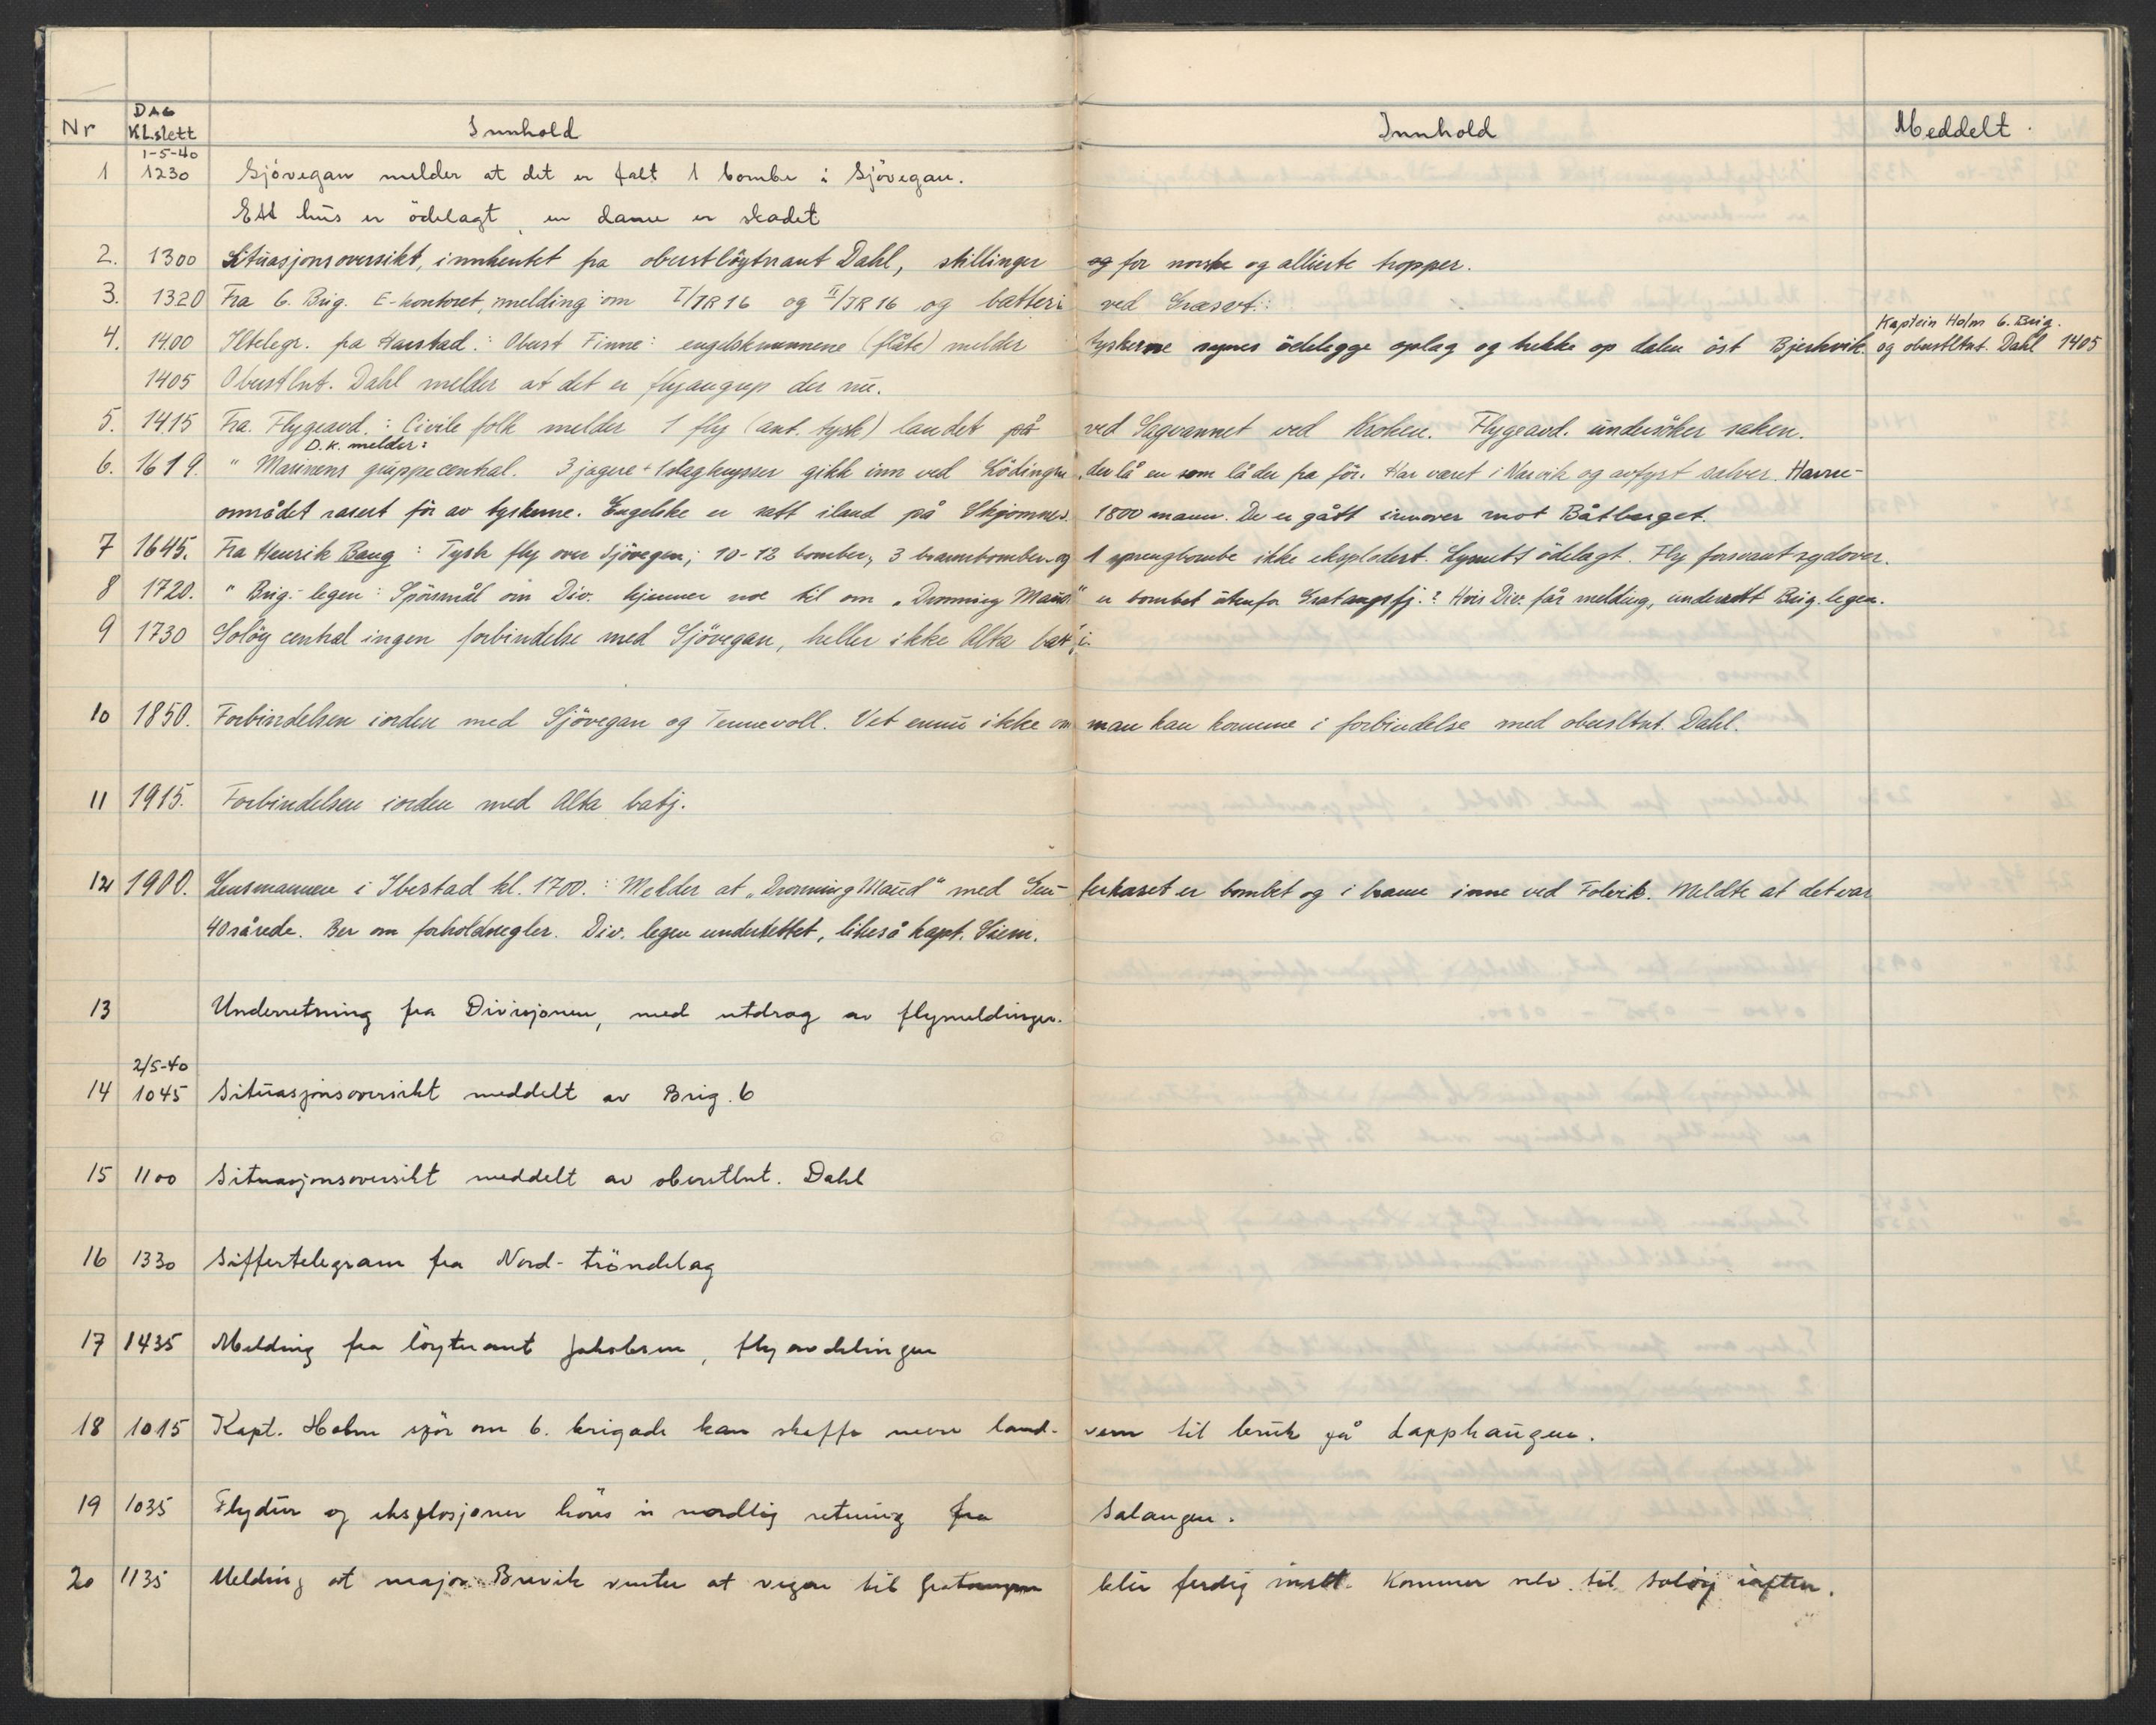 Nr DAG KLslett Innhold Innhold Meddelt.
1-5-40
1 1230 Sjövegan melder at det er falt 1 bombe i Sjövegan.
Ett hus er ödelagt, en dame er skadet
2. 1300 Situasjonsoversikt, innhentet fra oberstlöytnant Dahl, stillinger og for norske og allierte tropper.
3. 1320 Fra 6. Brig. E-kontoret, melding om I/IR16 og II/IR16 og batteri ved
4. 1400 Iltelegr. fra Harstad: Oberst Finne: engelskmennene (flåte) melder tyskerne synes ödelegge oplag og trekke op dalen öst Bjerkvik. Kaptein Holm 6. Brig. og oberstltnt. Dahl 1405
1405 Oberstlnt. Dahl melder at det er flyangrep der nu.
5. 1415 Fra. Flygeavd.: Civile folk melder 1 fly (ant. tysk) landet på ved Sagvannet ved Kroken. Flygeavd. undersöker saken.
D.K. melder:
6. 1619. " Marinens gruppecentral. 3 jagere + 1 slagkrysser gikk inn ved Lödingen, der lå en som lå der fra för. Har været i Narvik og avfyrt salver. Havne-
området rasert för av tyskerne. Engelske er satt iland på Skjomnes. 1800 mann. De er gått innover mot Båtberget.
7 1645. Fra Henrik Baug: Tysk fly over Sjövegan; 10-12 bomber, 3 brannbomber og 1 sprengbombe ikke eksplodert. Lysnett ödelagt. Fly forsvant sydover.
8 1720. " Brig. legen: Spörsmål om Div. kjenner noe til om „Dronning Maud" er bombet utenfor Gratangsfj.? Hvis Div. får melding, underrett Brig. legen.
9 1730 Solöy central ingen forbindelse med Sjövegan, heller ikke Alta batj.
10 1850. Forbindelsen iorden med Sjövegan og Tennevoll. Vet ennu ikke om man kan komme i forbindelse med oberstltnt. Dahl.
11 1915. Forbindelsen iorden med Alta batj.
12 1900. Lensmannen i Ibestad kl. 1700.: Melder at „Dronning Maud" med Gen- ferkorset er bombet og i brann inne ved Foldvik. Meldte at det var
40 sårede. Ber om forholdsregler. Div. legen underrettet, likeså kapt. Siem.
13 Underretning fra Divisjonen, med utdrag av flymeldinger.
2/5-40
14 1045 Situasjonsoversikt meddelt av Brig. 6
15 1100 Situasjonsoversikt meddelt av oberstlnt. Dahl
16 1330 Siffertelegram fra Nord-Tröndelag
17 1435 Melding fra löytnant Jakobsen, flyavdelingen
18 1015 Kapt. Holm spör om 6. brigade kan skaffe mere land- vern til bruk på Lapphaugen.
19 1035 Flydur og eksplosjoner höres i nordlig retning fra Salangen.
20 1135 Melding at major Brevik venter at vegen til Gratangen blir ferdig inatt. Kommer selv til Solöy iaften.